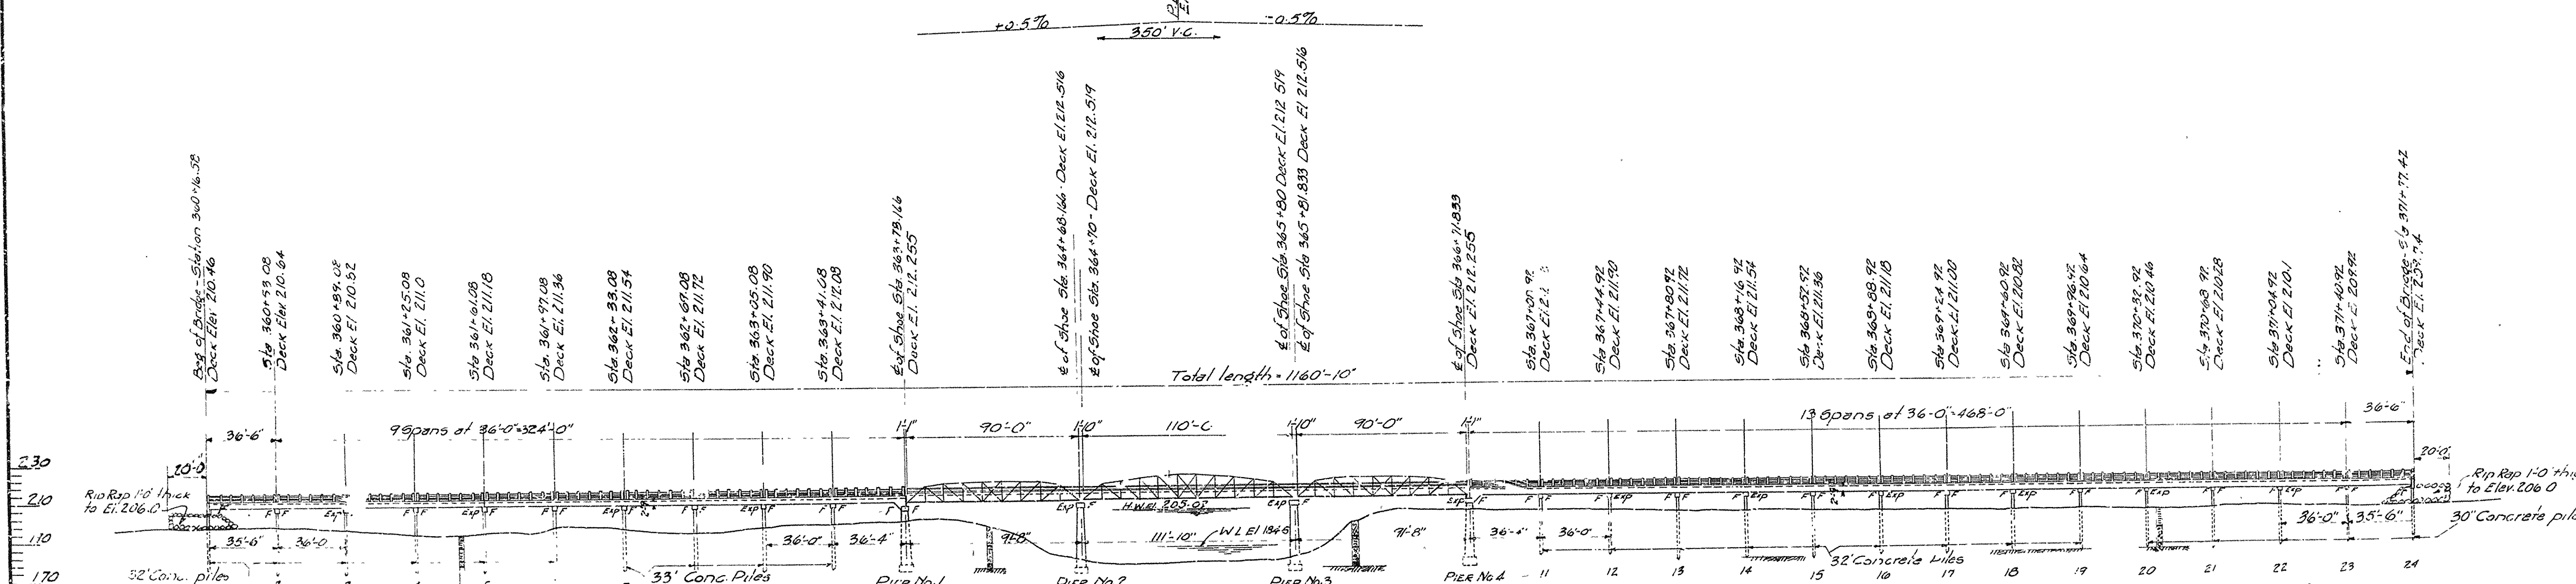 +0.5%
-0.5%
350' V.C.
Beg of Bridge - Station 360+16.58
Deck Elev 210.46
Sta 360+53.08
Deck Elev 210.64
Sta. 360+89.08
Deck El 210.82
Sta. 361+25.08
Deck El. 211.0
Sta 361+61.08
Deck El. 211.18
Sta. 361+97.08
Deck El. 211.36
Sta. 362+33.08
Deck El. 211.54
Sta. 362+69.08
Deck El. 211.72
Sta. 363+05.08
Deck El. 211.90
Sta. 363+41.08
Deck El. 212.08
℄ of Shoe Sta. 363+78.166
Deck El. 212.255
℄ of Shoe Sta. 364+68.166 - Deck El. 212.516
℄ of Shoe Sta. 364+70 - Deck El. 212.519
℄ of Shoe Sta. 365+80 Deck El. 212.519
℄ of Shoe Sta 365+81.833 Deck El 212.516
℄ of Shoe Sta 366+71.833
Deck El. 212.255
Sta. 367+08.92
Deck El.
Sta. 367+44.92
Deck El. 211.90
Sta. 367+80.92
Deck El. 211.72
Sta. 368+16.92
Deck El 211.54
Sta 368+52.92
Deck El. 211.36
Sta. 368+88.92
Deck El. 211.18
Sta 369+24.92
Deck El 211.00
Sta. 369+60.92
Deck El. 210.82
Sta. 369+96.92
Deck El 210.64
Sta. 370+32.92
Deck El 210.46
Sta 370+68.92
Deck El 210.28
Sta 371+04.92
Deck El 210.1
Sta. 371+40.92
Deck El 209.92
End of Bridge - Sta 371+77.42
Deck El. 209.74
Total length = 1160'-10"
36'-6"
9 Spans at 36'-0"=324'-0"
1'-1"
90'-0"
1'-10"
110'-0
1'-10"
90'-0"
1'-1"
13 Spans at 36'-0"=468'-0"
36'-6"
230
210
190
170
20'-0"
Rip Rap 1'-0" thick
to El. 206.0
F F Exp F F Exp F F Exp F F Exp F
Exp F
H.W. El. 205.07
Exp F
Exp F
20'-0"
Rip Rap 1'-0" thick
to Elev. 206.0
35'-6"
36'-0
36'-0"
36'-4"
91'-8"
111'-10"
W L El 184.6
91'-8"
36'-4"
36'-0"
36'-0"
35'-6"
32' Conc. piles
33' Conc. Piles
32' Concrete Piles
30" Concrete pile
PIER No. 1
PIER No. 2
PIER No. 3
PIER No 4
11
12
13
14
15
16
17
18
19
20
21
22
23
24